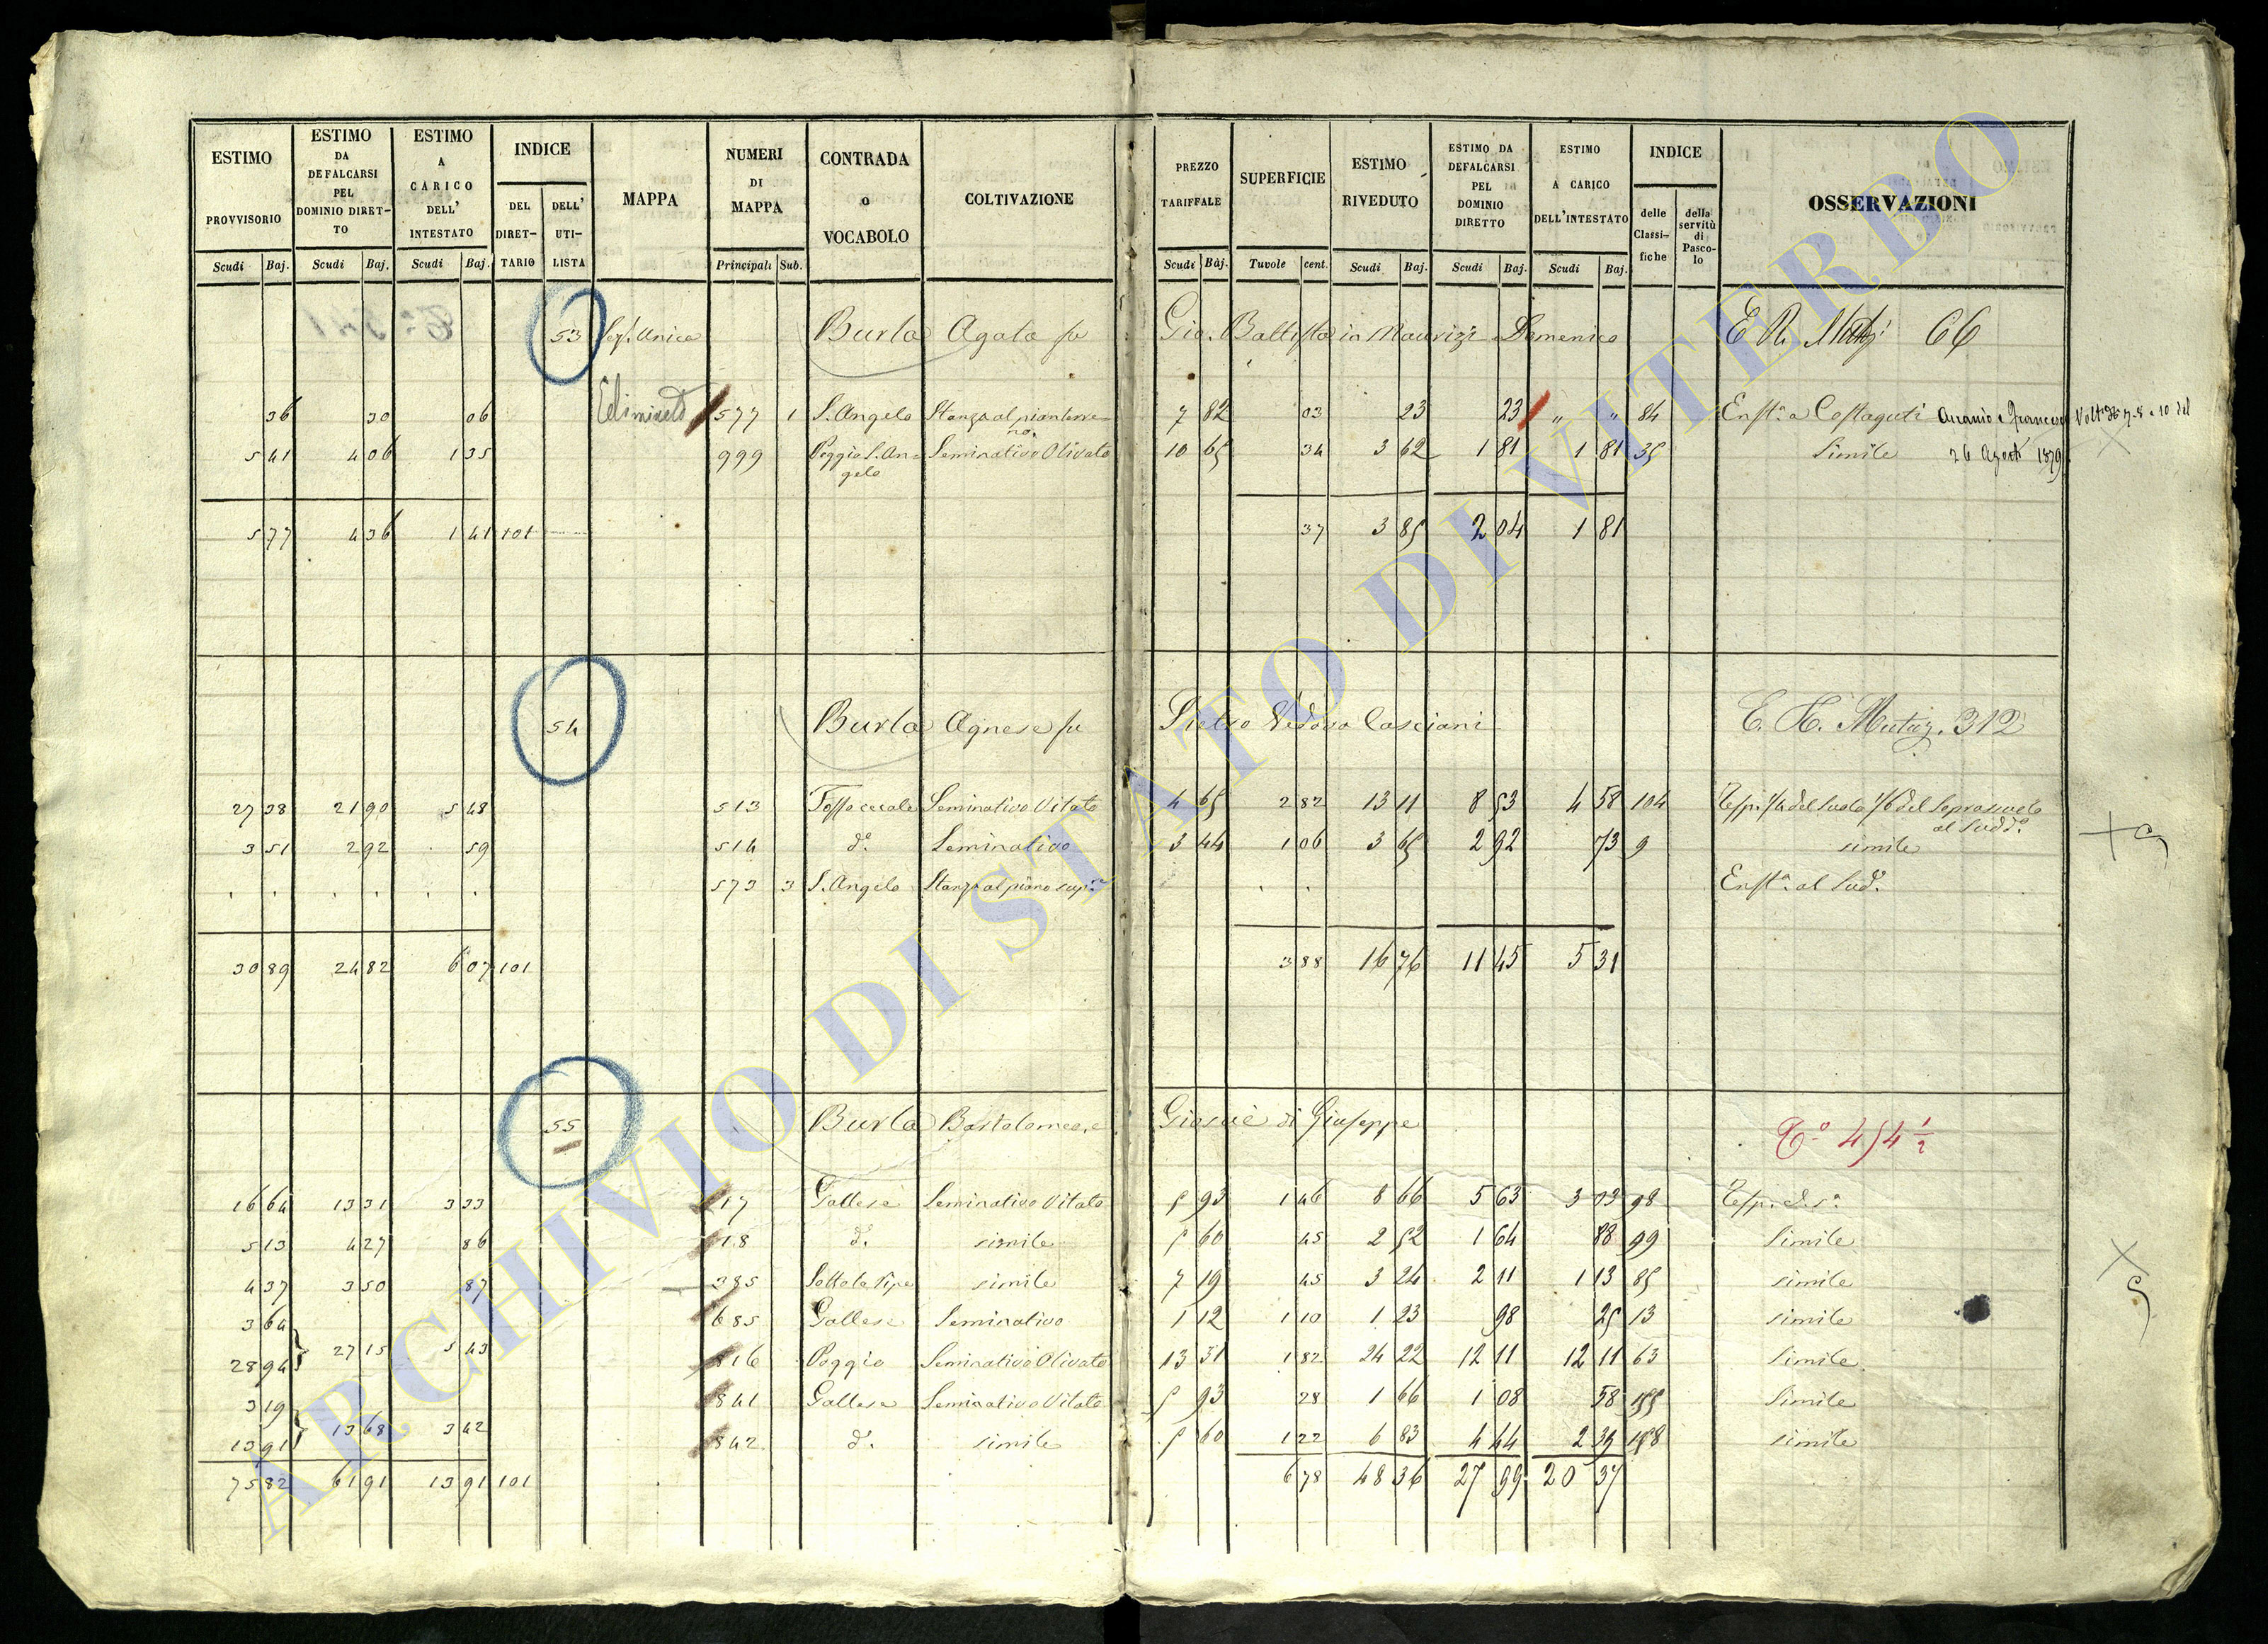 ESTIMO PROVVISORIO Scudi Baj. ESTIMO DA DEFALCARSI PEL DOMINIO DIRET-TO Scudi Baj. ESTIMO A CARICO DELL' INTESTATO Scudi Baj. INDICE DEL DIRET-TARIO DELL' UTI-LISTA MAPPA NUMERI DI MAPPA Principali Sub. CONTRADA o VOCABOLO COLTIVAZIONE PREZZO TARIFFALE Scudi Baj. SUPERFICIE Tavole cent. ESTIMO RIVEDUTO Scudi Baj. ESTIMO DA DEFALCARSI PEL DOMINIO DIRETTO Scudi Baj. ESTIMO A CARICO DELL'INTESTATO Scudi Baj. INDICE delle Classi-fiche della servitù di Pasco-lo OSSERVAZIONI
53 Sez. Unica Burla Agata fu Gio. Battista in Maurizi Domenico E R 66
36 30 06 Eliminato 577 1 S. Angelo Stanza al pianterre-no 7 82 03 23 23 " " 84 Enft.a a Costaguti Ascanio e Francesco
5 41 4 06 1 35 999 Poggio S. An-gelo Seminativo Olivato 10 65 34 3 62 1 81 1 81 35 Simile 26 Agosto 1879
5 77 4 36 1 41 101 37 3 85 2 04 1 81
54 Burla Agnese fu Pietro Vedova Casciani 312
27 38 21 90 5 48 513 Seminativo Vitato 4 65 2 82 13 11 8 53 4 58 104 Resp. 1/4 del Suolo 1/6 del Soprasuolo al Sudd.o
3 51 2 92 59 514 d.o Seminativo 3 44 1 06 3 65 2 92 73 9 simile
573 3 S. Angelo Stanza al piano sup.re Enft.a al Sud.o
30 89 24 82 6 07 101 3 88 16 76 11 45 5 31
55 Burla Bartolomeo, e Giosuè di Giuseppe 454 1/2
16 64 13 31 3 33 17 Gallese Seminativo Vitato 5 93 1 46 8 66 5 63 3 03 98 Resp. c.s.a
5 13 4 27 86 18 d.o simile 5 60 45 2 52 1 64 88 99 Simile
4 37 3 50 87 385 simile 7 19 45 3 24 2 11 1 13 85 simile
3 64 685 Gallese Seminativo 1 12 1 10 1 23 98 25 13 simile
28 94 27 15 5 43 816 Poggio Seminativo Olivato 13 31 1 82 24 22 12 11 12 11 63 Simile
3 19 841 Gallese Seminativo Vitato 5 93 28 1 66 1 08 58 Simile
13 91 13 68 3 42 842 d.o simile 5 60 1 22 6 83 4 44 2 39 simile
75 82 61 91 13 91 101 6 78 48 36 27 99 20 37
ARCHIVIO DI STATO DI VITERBO